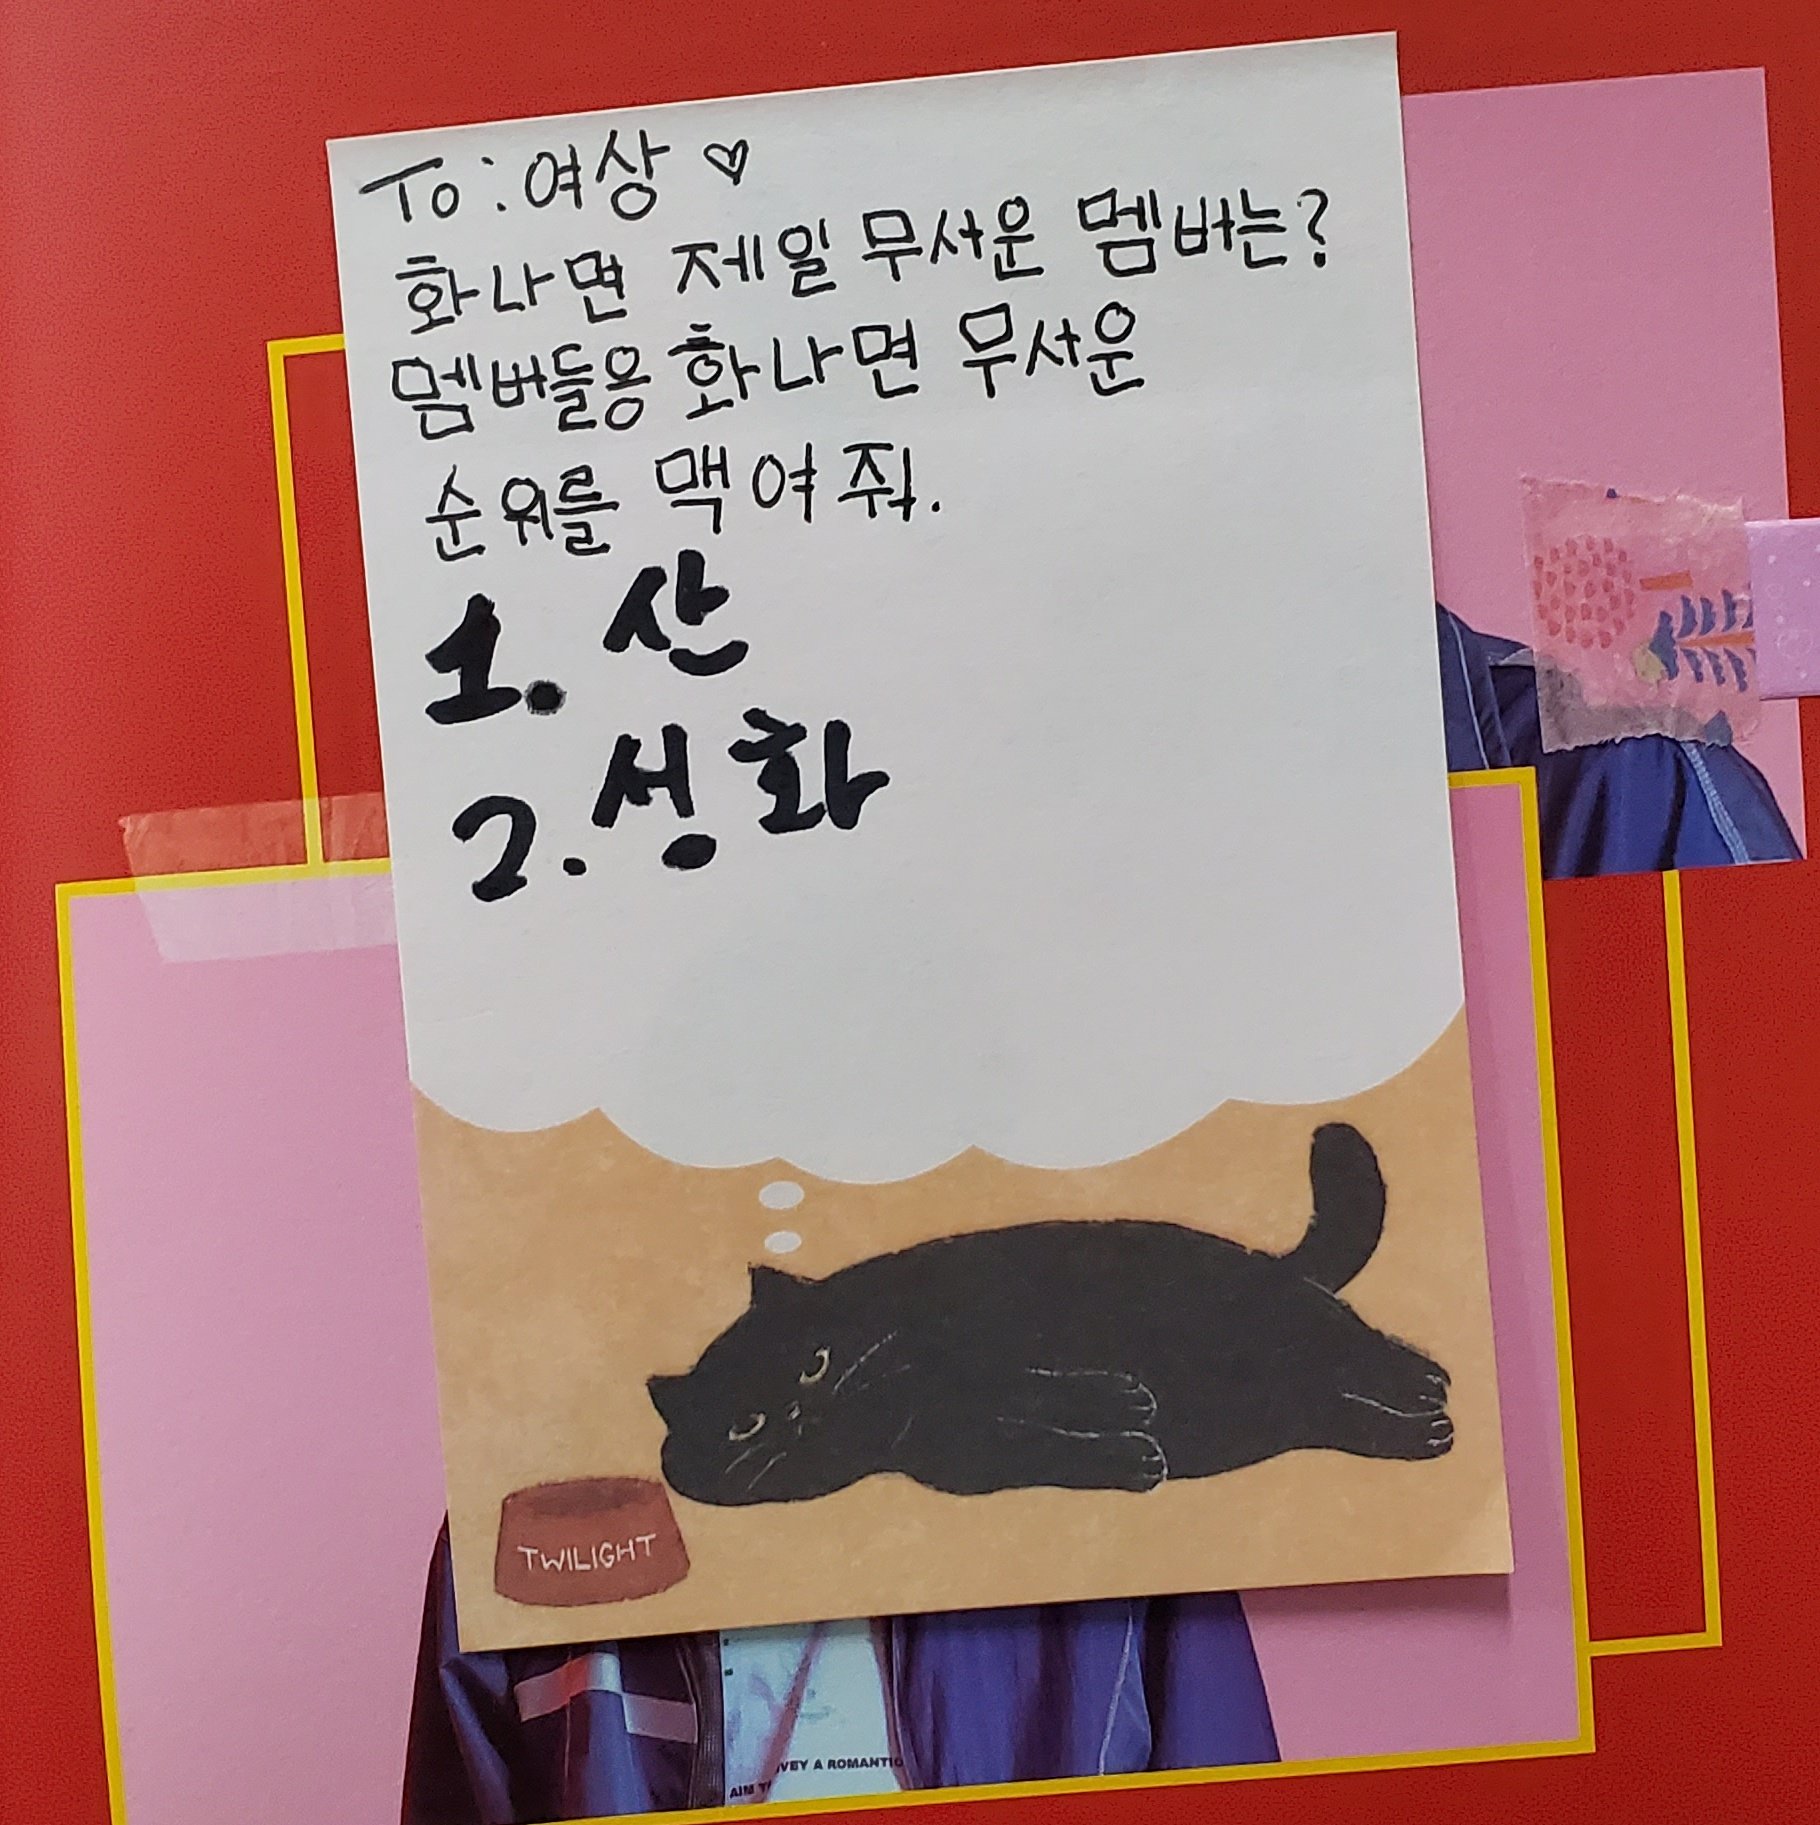 To : 여상 ♡
화나면 제일 무서운 멤버는?
멤버들용 화나면 무서운
순위를 맥여줘.
1. 산
2. 성화
TWILIGHT
VEY A ROMANTIC
AIM T